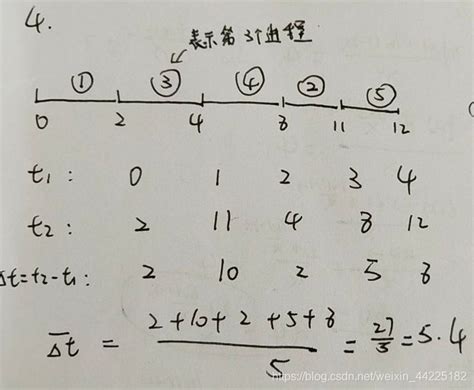 4.
表示第3个进程
① ③ ④ ② ⑤
0 2 4 8 11 12
t₁: 0 1 2 3 4
t₂: 2 11 4 8 12
Δt=t₂-t₁: 2 10 2 5 8
Δt̅ = (2+10+2+5+8)/5 = 27/5 = 5.4
https://blog.csdn.net/weixin_44225182